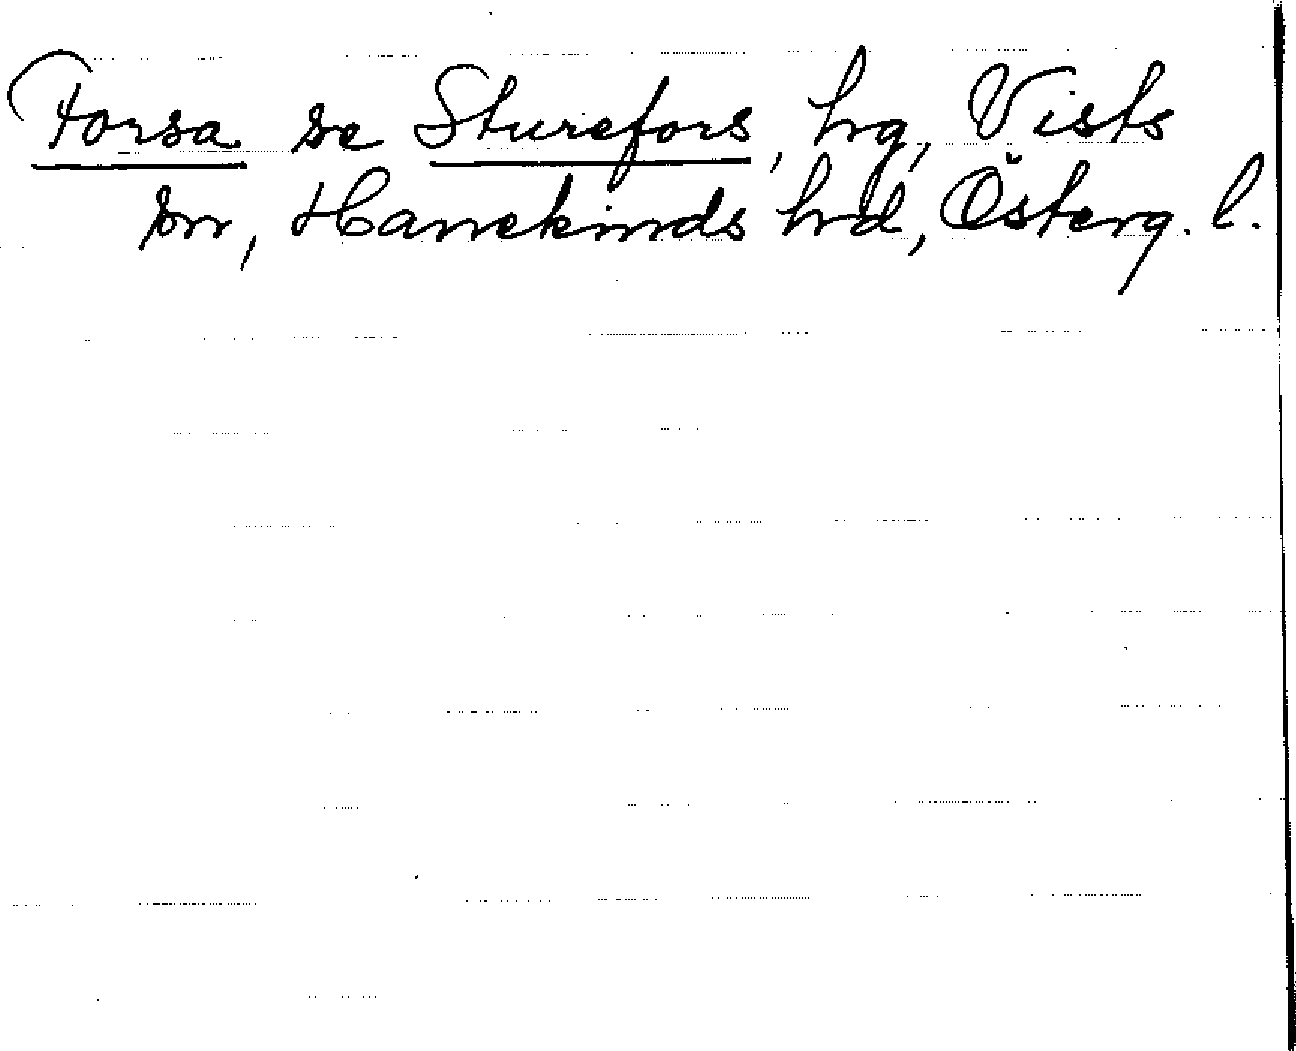 Forsa se Sturefors, hrg, Vists
sn, Hanekinds hrd, Österg. l.